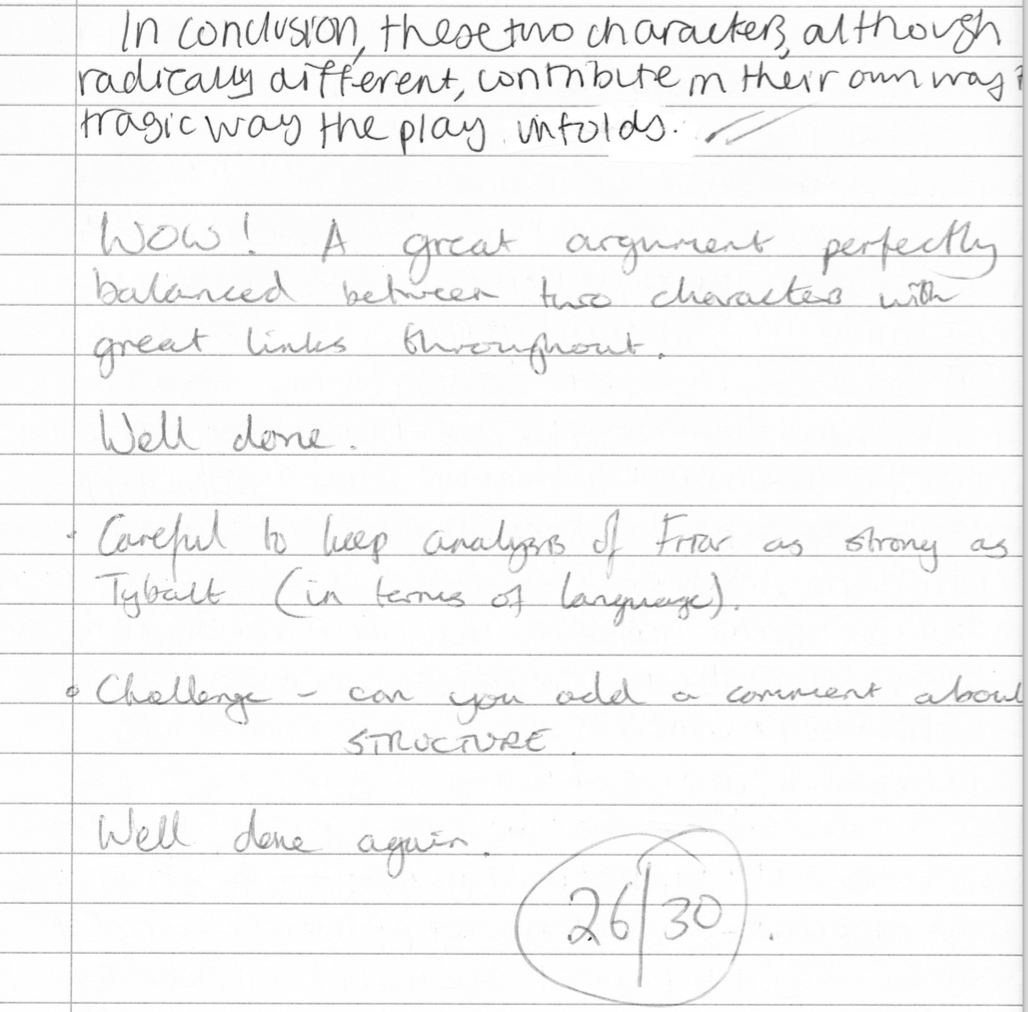 In conclusion, these two characters, although
radically different, contribute in their own way
tragic way the play unfolds.
Wow! A great argument perfectly
balanced between two characters with
great links throughout.
Well done.
Careful to keep analysis of Friar as strong as
Tybalt (in terms of language).
Challenge - can you add a comment about
STRUCTURE.
Well done again.
26/30.